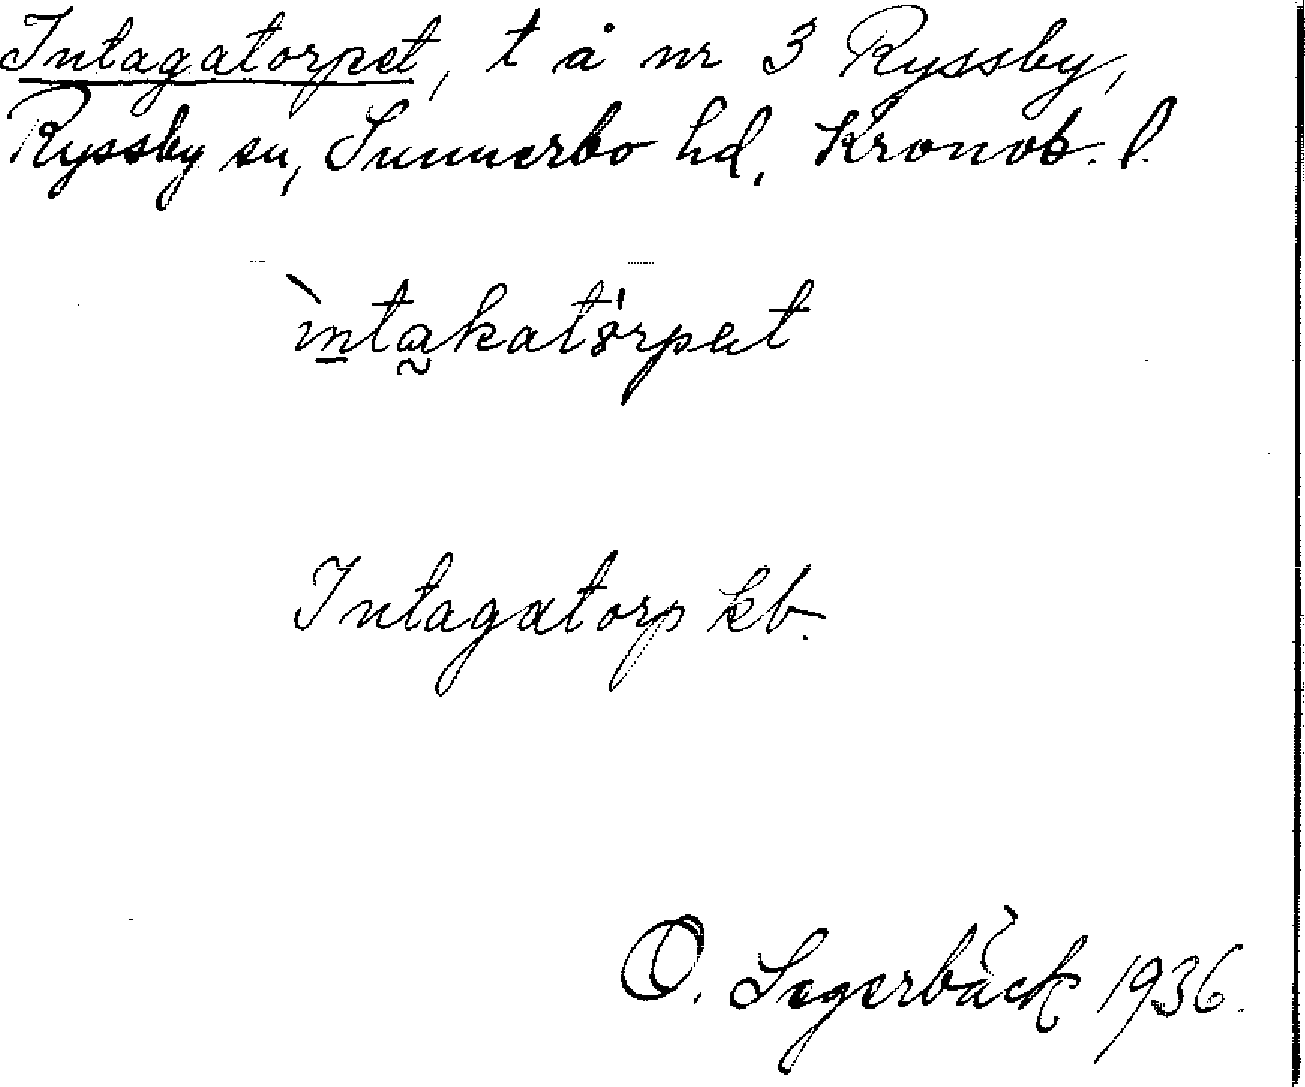 Intagatorpet, t å nr 3 Ryssby,
Ryssby sn, Sunnerbo hd, Kronob. l.
ìntakatórpet
Intagatorp kb.
O. Segerbäck 1936.